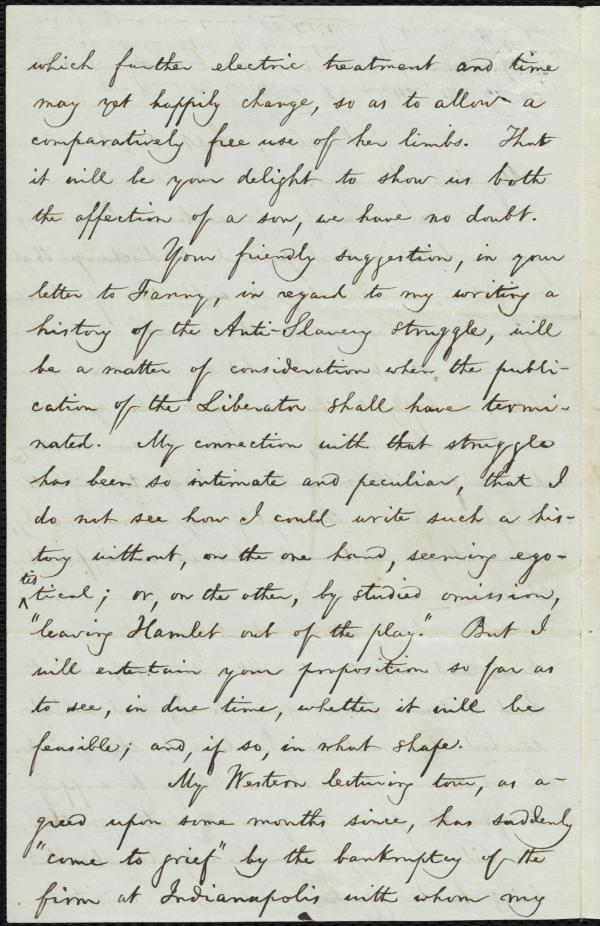 which further electric treatment and time
may yet happily change, so as to allow a
comparatively free use of her limbs. That
it will be your delight to show us both
the affection of a son, we have no doubt.
Your friendly suggestion, in your
letter to Fanny, in regard to my writing a
history of the Anti-Slavery struggle, will
be a matter of consideration when the publi-
cation of the Liberator shall have termi-
nated. My connection with that struggle
has been so intimate and peculiar, that I
do not see how I could write such a his-
tory without, on the one hand, seeming ego-
tis
tical; or, on the other, by studied omission,
"leaving Hamlet out of the play." But I
will entertain your proposition so far as
to see, in due time, whether it will be
feasible; and, if so, in what shape.
My Western lecturing tour, as a-
greed upon some months since, has suddenly
"come to grief" by the bankruptcy of the
firm at Indianapolis with whom my